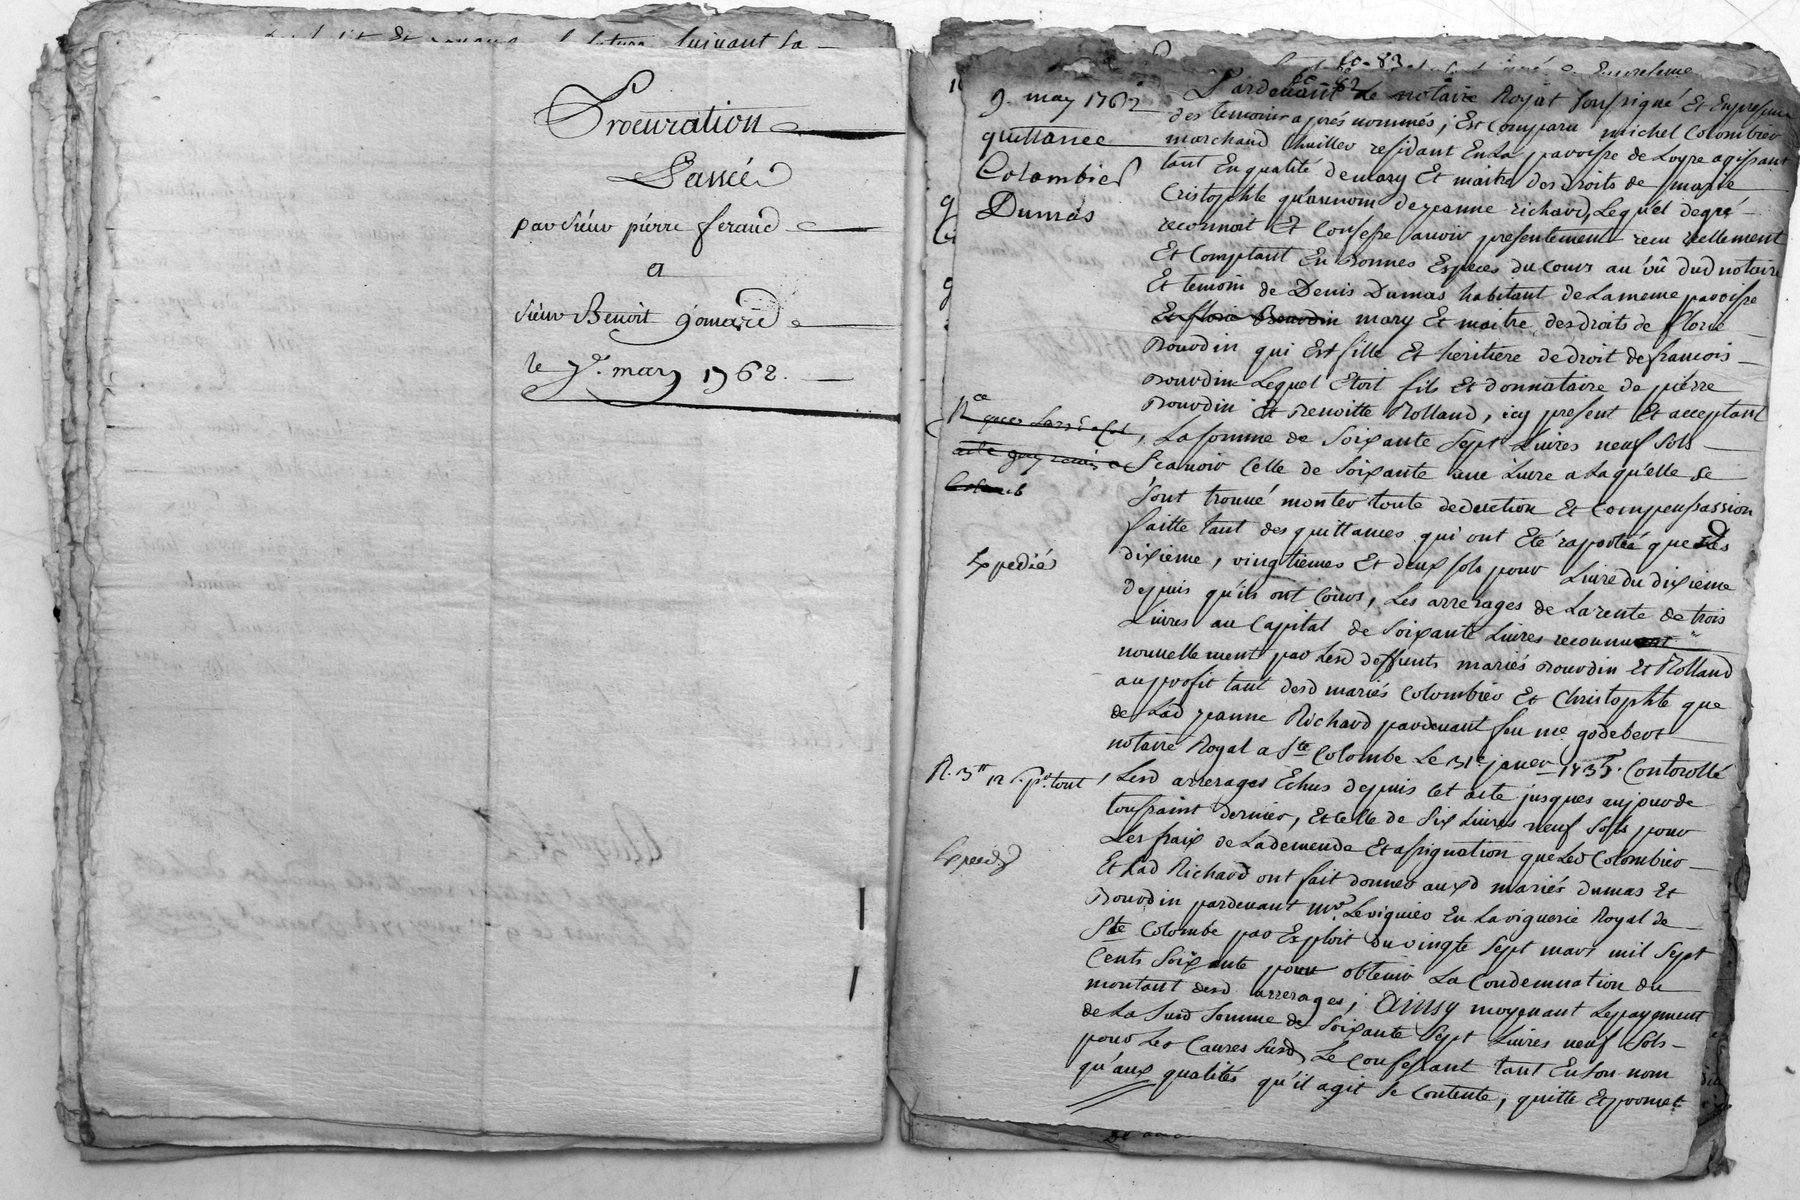 suivant la
Procuration
Passée
par sieur pierre feraud
a
sieur Benoit gomard
le 7e. may 1762.
9. may 1762
quittance
Colombier
Dumas
Expedié
Pardevant Le notaire Royal soussigné Et En presence
des temoins aprés nommés, Est Comparu michel Colombier
marchand thuillier residant En La paroisse de Loyre agissant
tant En qualité de mary Et maitre des droits de marie
Cristophle qu'au nom de jeanne richard, Lequel de gré
reconnoit Et Confesse avoir presentement recu réellement
Et Comptant En Bonnes Especes du Cours au vû dud notaire
Et temoin de Denis Dumas habitant de La meme paroisse
mary Et maitre des droits de florie
Bourdin qui Est fille Et heritiere de droit de francois
Bourdin Lequel Etoit fils Et donnataire de piérre
Bourdin Et Benoitte Rolland, icy present Et acceptant
La somme de soixante sept Livres neuf sols
Scavoir Celle de soixante une Livre a Laquelle se
sont trouvé monter toute deduction Et Compensassion
faitte tant des quittances qui ont Eté raporteé que des
dixieme, vingtiemes Et deux sols pour Livre du dixieme
depuis qu'ils ont Cours, Les arrerages de La rente de trois
Livres au Capital de soixante Livres
nouvellement par Lesd deffunts mariés Bourdin Et Rolland
au profit tant desd mariés Colombier Et Christophle que
de Lad jeanne Richard pardevant feu me godebert
notaire Royal a Ste Colombe Le 31e janer 1735. Contorollé
R. 3tt 12 s. pr. tout
, Lesd arrerages Echus depuis Cet acte jusques au jour de
toussaint dernier, Et Celle de six Livres neuf sols pour
Les fraix de La demende Et assignation que Led Colombier
Et Lad Richard ont fait donner auxd mariés Dumas Et
Bourdin pardevant mr. Le viguier En La viguerie Royal de
Ste Colombe par Exploit du vingte sept mars mil sept
Cents soixante pour obtenir La Condemnation du
montant desd arrerages; Ainsy moyenant Le payement
de La susd somme de soixante sept Livres neuf sols
pour Les Causes susd, Le Confessant tant En son nom
qu'aux qualités qu'il agit se Contente, quitte Et promet